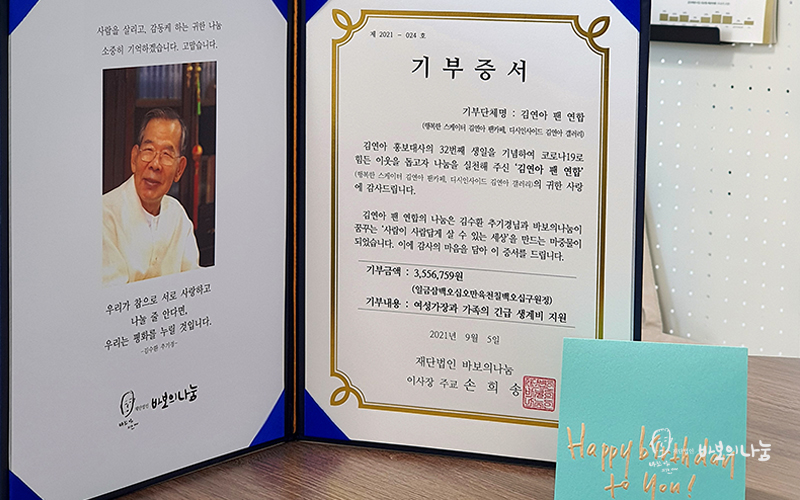 사람을 살리고, 감동케 하는 귀한 나눔
소중히 기억하겠습니다. 고맙습니다.
우리가 참으로 서로 사랑하고
나눌 줄 안다면,
우리는 평화를 누릴 것입니다.
-김수환 추기경-
재단법인 바보의나눔
제 2021 - 024 호
기부증서
기부단체명 : 김연아 팬 연합
(행복한 스케이터 김연아 팬카페, 디시인사이드 김연아 갤러리)
김연아 홍보대사의 32번째 생일을 기념하여 코로나19로
힘든 이웃을 돕고자 나눔을 실천해 주신 '김연아 팬 연합'
(행복한 스케이터 김연아 팬카페, 디시인사이드 김연아 갤러리)의 귀한 사랑
에 감사드립니다.
김연아 팬 연합의 나눔은 김수환 추기경님과 바보의나눔이
꿈꾸는 '사람이 사람답게 살 수 있는 세상'을 만드는 마중물이
되었습니다. 이에 감사의 마음을 담아 이 증서를 드립니다.
기부금액 : 3,556,759원
(일금삼백오십오만육천칠백오십구원정)
기부내용 : 여성가장과 가족의 긴급 생계비 지원
2021년 9월 5일
재단법인 바보의나눔
이사장 주교 손희송
Happy birthday
to you!
바보의나눔